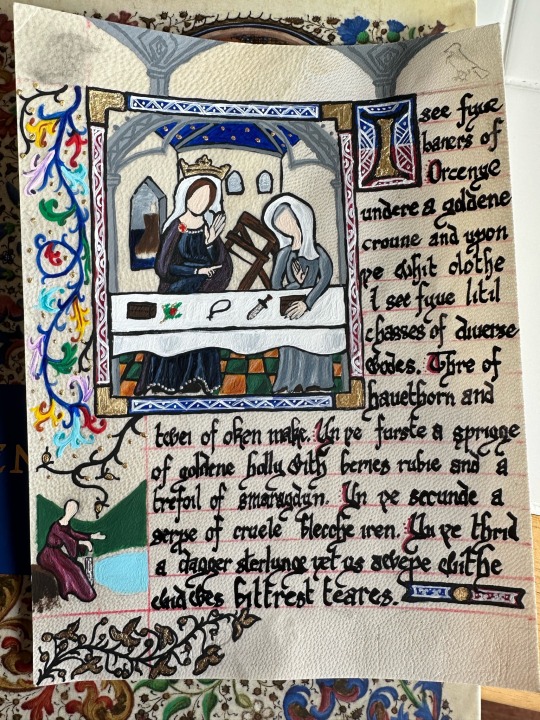 I see fyue
baners of
Orcenye
undere a goldene
croune and upon
ye whit clothe
I see fyue litil
chasses of diuerse
wodes. Thre of
hauethorn and
twei of oken make. Un ye furste a sprigge
of goldene holly with berries rubie and a
trefoil of smaragdyn. Un ye secunde a
serpe of cruele blecche iren. Un ye thrid
a dagger sterlynge yet ys withe
widwes bittrest teares.